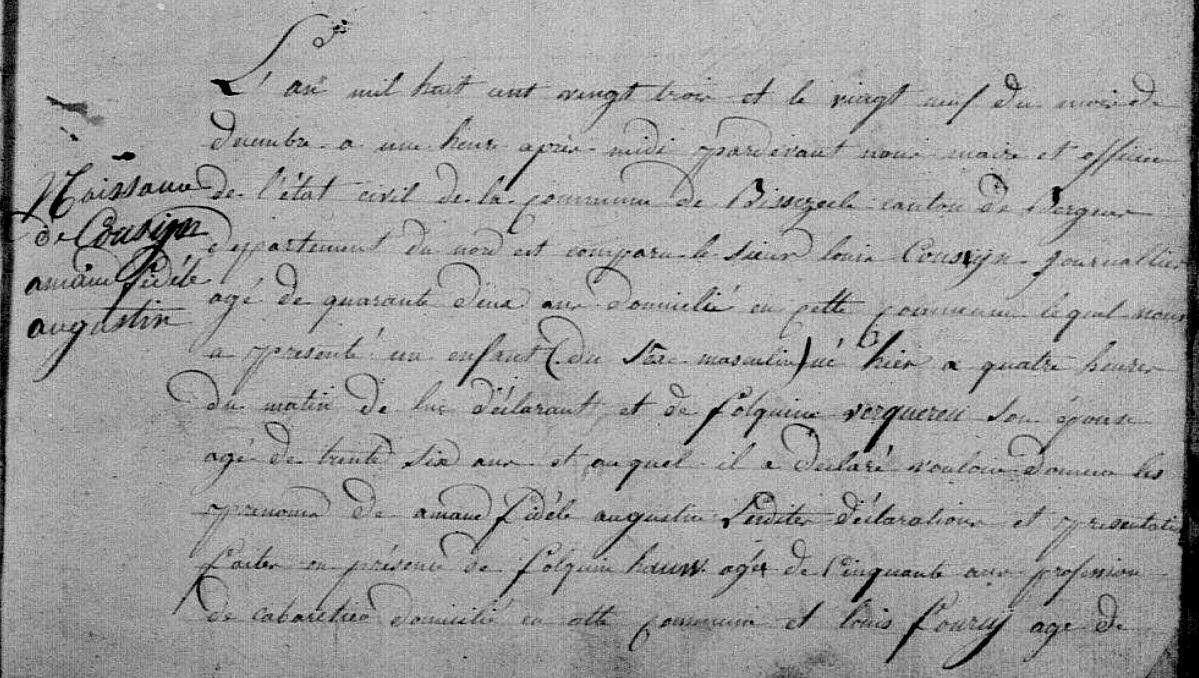 L'an mil huit cent vingt trois et le vingt neuf du mois de
decembre a une heure après midi pardevant nous maire et officier
de l'état civil de la commune de Bissezeele canton de Bergues
departement du nord est comparu le sieur louis Cousyn journallier
agé de quarante deux ans domicilié en cette commune lequel nous
a presenté un enfant (du sexe masculin) né hier a quatre heures
du matin de lui déclarant et de folquine verquereu son épouse
agé de trente six ans et auquel il a déclaré vouloir donner les
prenoms de amand fidéle augustin Lesdites déclarations et presentation
faites en présence de folquin hauw agés de Cinquante ans profession
de cabaretier domicilié en cette commune et louis fourcy age de
Naissance
de Cousijn
amand fidéle
augustin